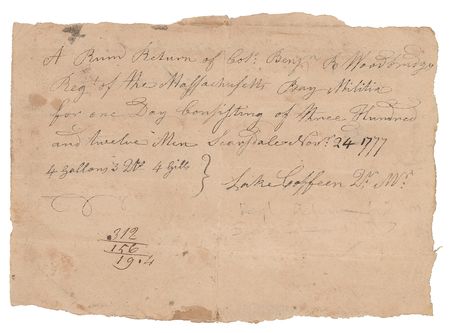 A Rum Return of Col. Benjn R Woodbridge
Regt of the Massachusetts Bay Militia
for one Day Consisting of three Hundred
and twelve Men Scarsdale Novr. 24 1777
4 Gallons 3 Qts 4 Gills
Lake Coffeen Qr Mr
312
156
19.4